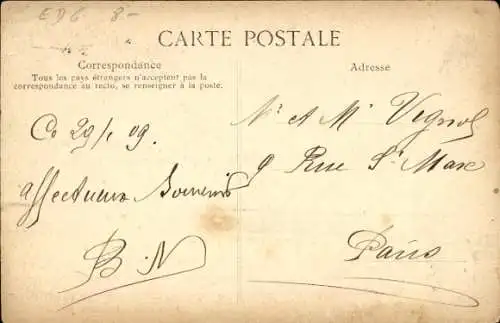 EDG 8-
CARTE POSTALE
Correspondance
Tous les pays étrangers n'acceptent pas la
correspondance au recto, se renseigner à la poste.
Ce 29/1 09.
affectueux Souvenirs
B. N
Adresse
Mr et Me Vignol
9 Rue St Marc
Paris